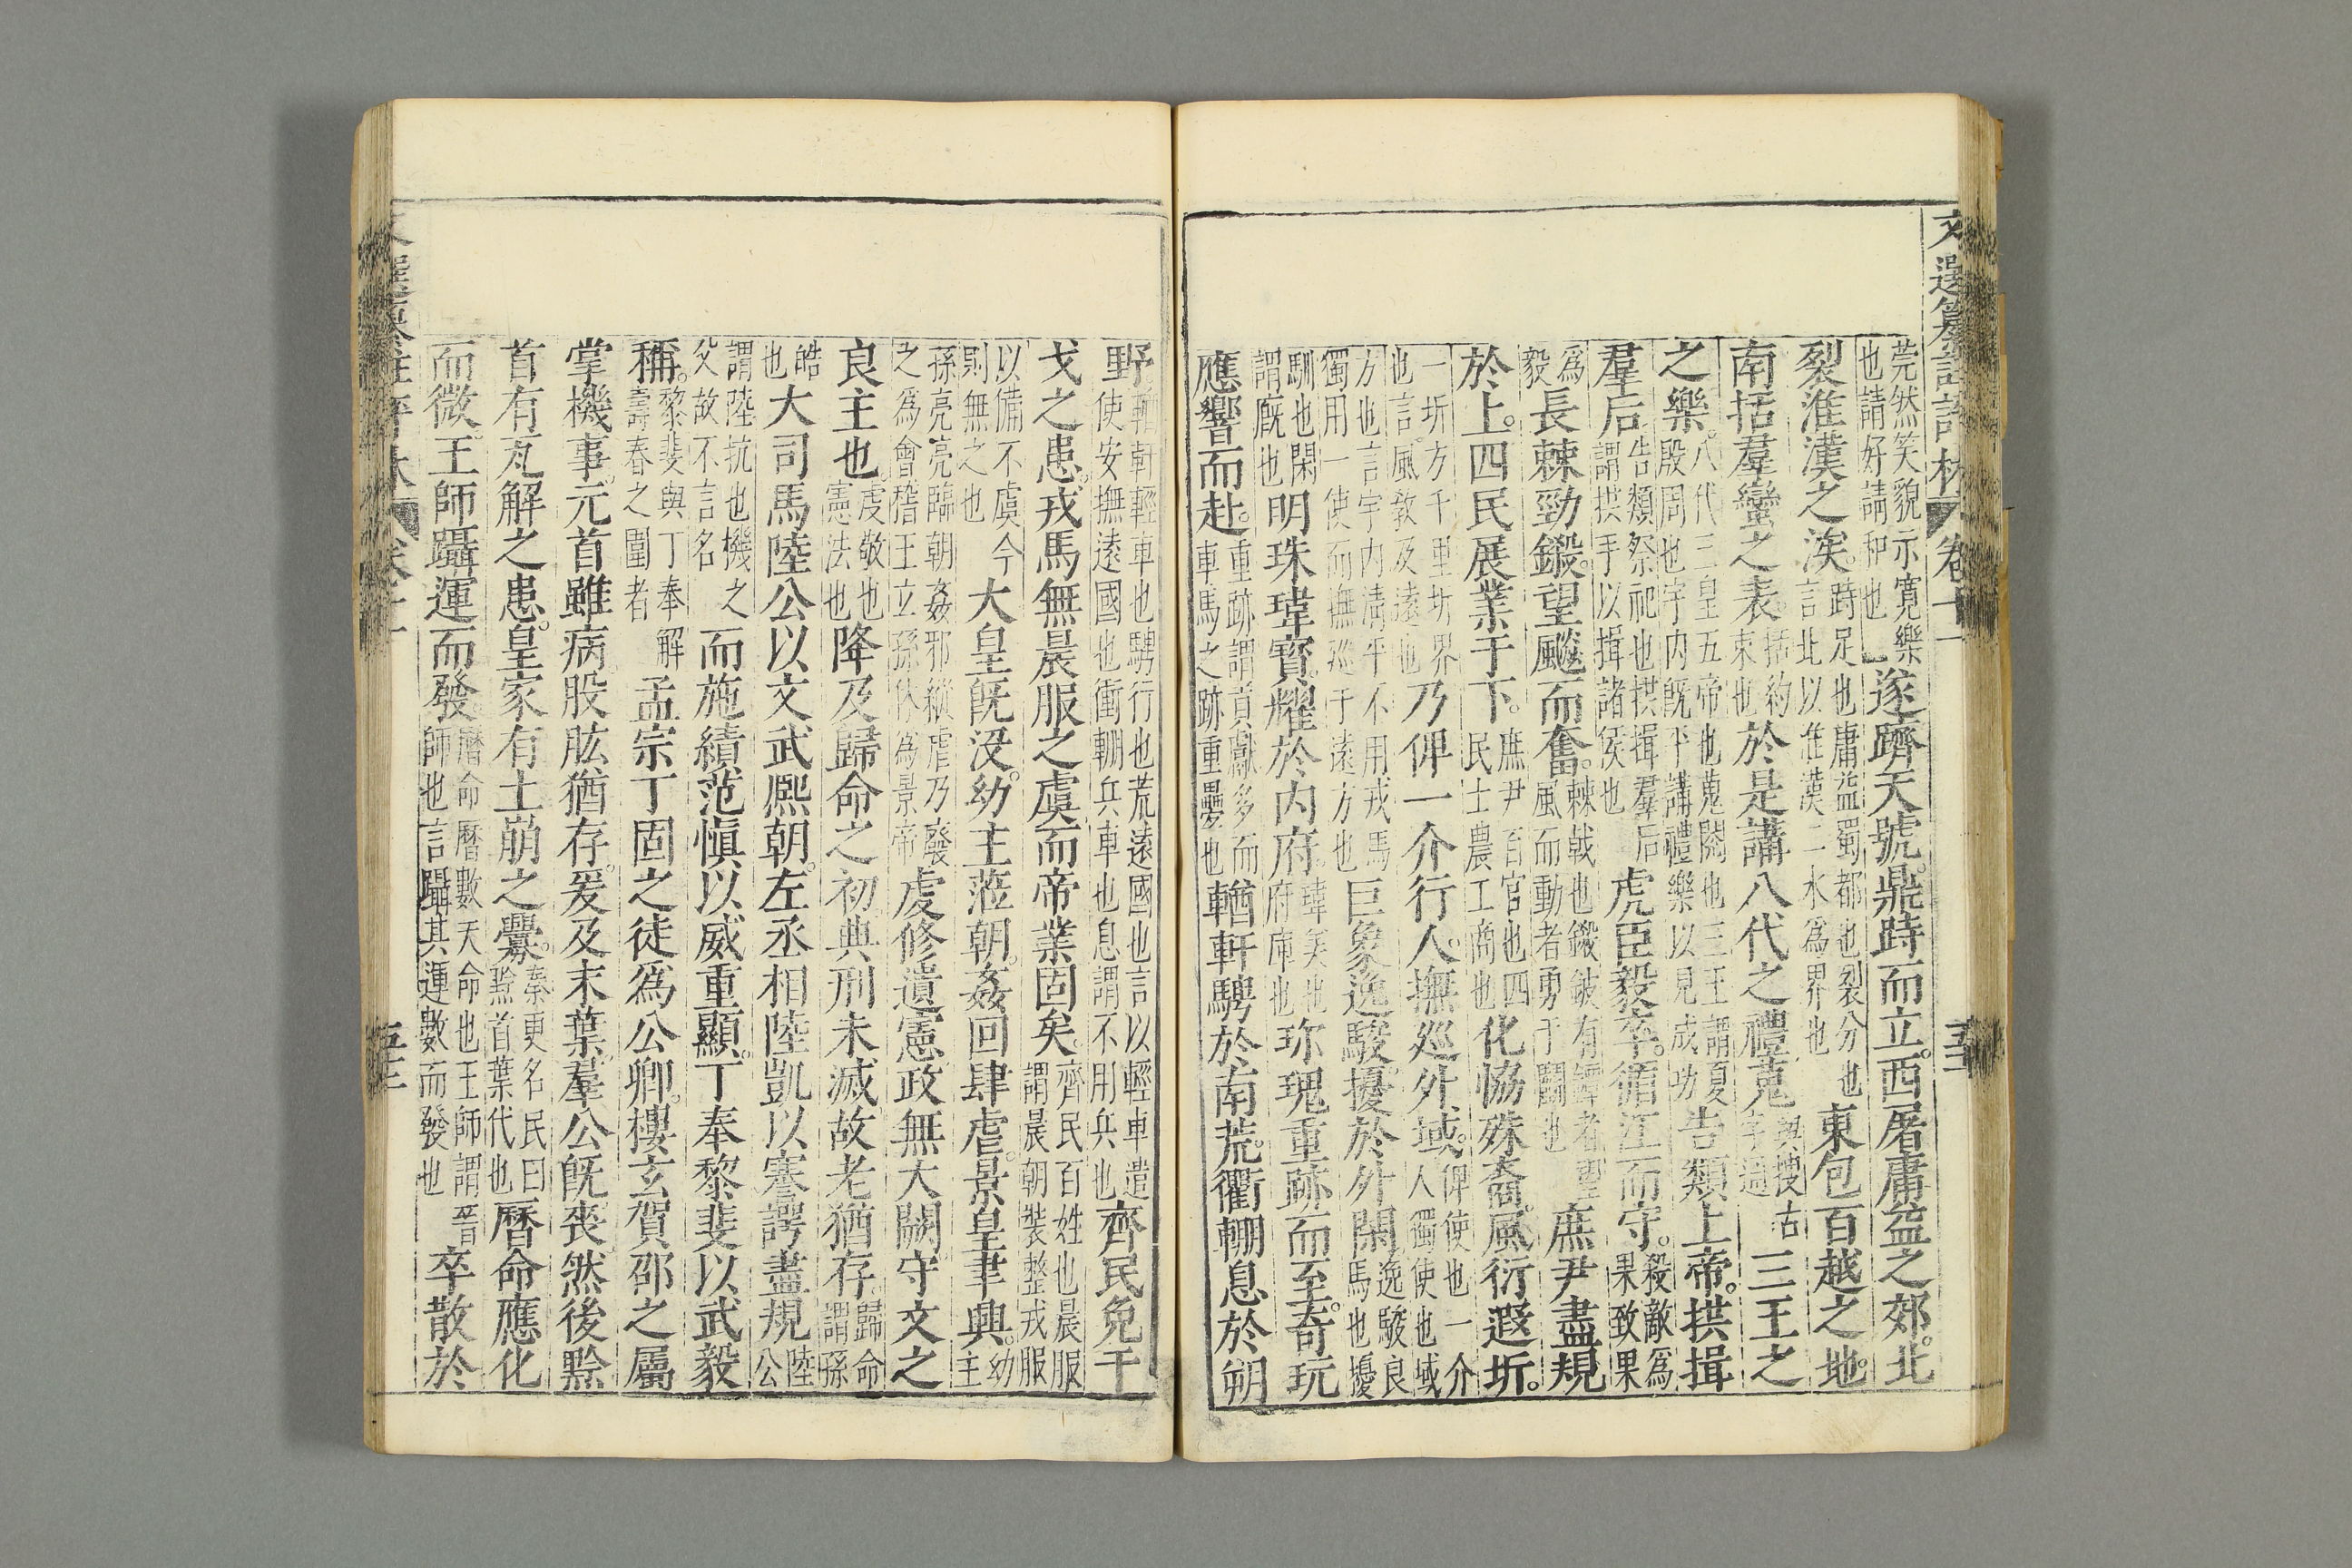 莞然笑貌示寛樂
也請好請和也
遂躋天號鼎跱而立西屠庸益之郊北
裂淮漢之涘
跱足也庸益蜀都也裂分也
言北以淮漢二水爲界也
東包百越之地
南括羣蠻之表
括約
東也
於是講八代之禮蒐
與搜古
字通
三王之
之樂
八代三皇五帝也蒐閱也三王謂夏
殷周也宇内旣平講禮樂以見成功
告類上帝拱揖
羣后
告類祭祀也拱揖羣后
謂拱手以揖諸侯也
虎臣毅卒循江而守
殺敵爲
果致果
爲
毅
長棘勁鎩望飈而奮
棘戟也鎩鈹有鐔者望
風而動者勇于鬭也
庶尹盡規
於上四民展業于下
庶尹百官也四
民士農工商也
化協殊裔風衍遐圻
一圻方千里圻界
也言風敎及遠也
乃俾一介行人撫廵外域
俾使也一介
人獨使也域
方也言宇内淸平不用戎馬
獨用一使而撫廵于遠方也
巨象逸駿擾於外閑
逸駿良
馬也擾
馴也閑
謂廐也
明珠瑋寳耀於内府
瑋美也
府庫也
珎瑰重跡而至奇玩
應響而赴
重跡謂貢獻多而
車馬之跡重疊也
輶軒騁於南荒衝輣息於朔
野
輶軒輕車也騁行也荒遠國也言以輕車遣
使安撫遠國也衝輣兵車也息謂不用兵也
齊民免干
戈之患戎馬無晨服之虞而帝業固矣
齊民百姓也晨服
謂晨朝裝整戎服
以備不虞今
則無之也
大皇旣没幼主蒞朝姦回肆虐景皇聿興
幼
主
孫亮亮臨朝姦邪縱虐乃廢
之爲會稽王立孫休爲景帝
虔修遺憲政無大闕守文之
良主也
虔敬也
憲法也
降及歸命之初典刑未滅故老猶存
歸命
謂孫
皓
也
大司馬陸公以文武熙朝左丞相陸凱以謇諤盡規
陸
公
謂陸抗也機之
父故不言名
而施績范愼以威重顯丁奉黎斐以武毅
稱
黎斐與丁奉解
壽春之圍者
孟宗丁固之徒爲公卿樓玄賀邵之屬
掌機事元首雖病股肱猶存爰及末葉羣公旣喪然後黔
首有瓦解之患皇家有土崩之釁
秦更名民曰
黔首葉代也
曆命應化
而微王師躡運而發
曆命曆數天命也王師謂晋
師也言躡其運數而發也
卒散於